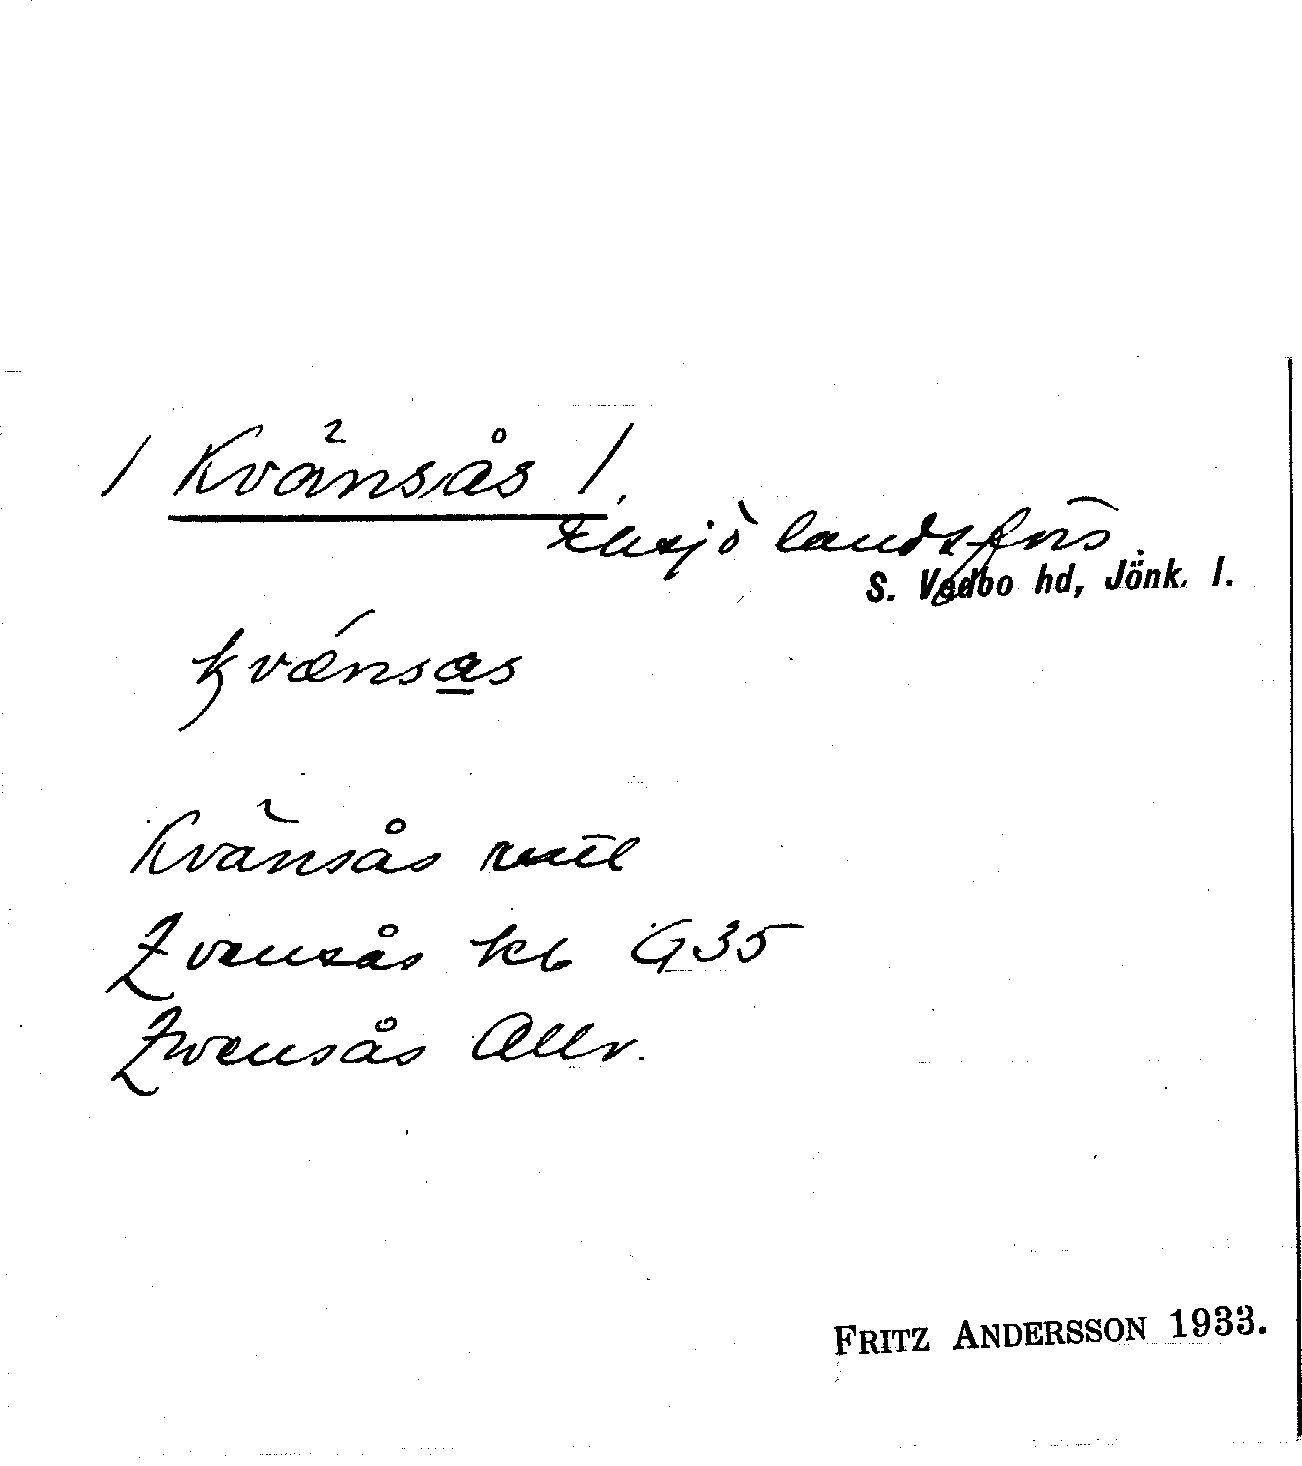 / Kvänsås /.
Eksjö landsförs.
S. Vedbo hd, Jönk. l.
kvǽnsas
Kvänsås
Qvensås kb G35
Qwensås Allr.
FRITZ ANDERSSON 1933.